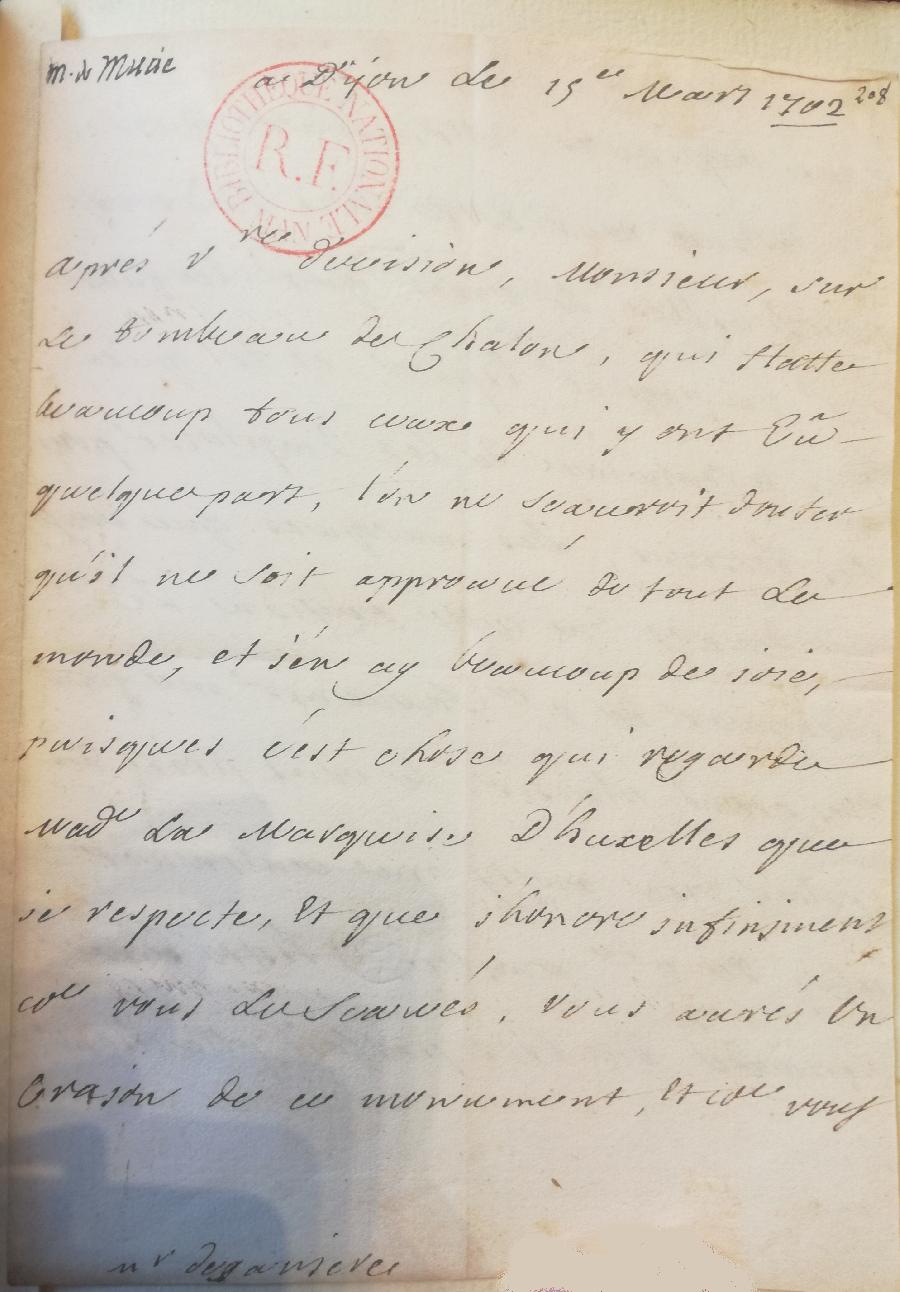 m. de Mucie
a Dijon Le 15e Mars 1702
208
BIBLIOTHEQUE NATIONALE MSS
R.F.
aprés vre decision, Monsieur, sur
Le tombeau de Chalon, qui flatte
beaucoup tous ceux qui y ont Eü
quelque part, l'on ne scauroit douter
qu'il ne soit approuué de tout Le
monde, et j'en ay beaucoup de joie,
puisques c'est chose qui regarde
Made La Marquise D'huxelles que
je respecte, Et que j'honore infiniment
coe vous Le Scaués. vous aurés Un
Craion de ce monument, Et coe vous
mr de ganieres